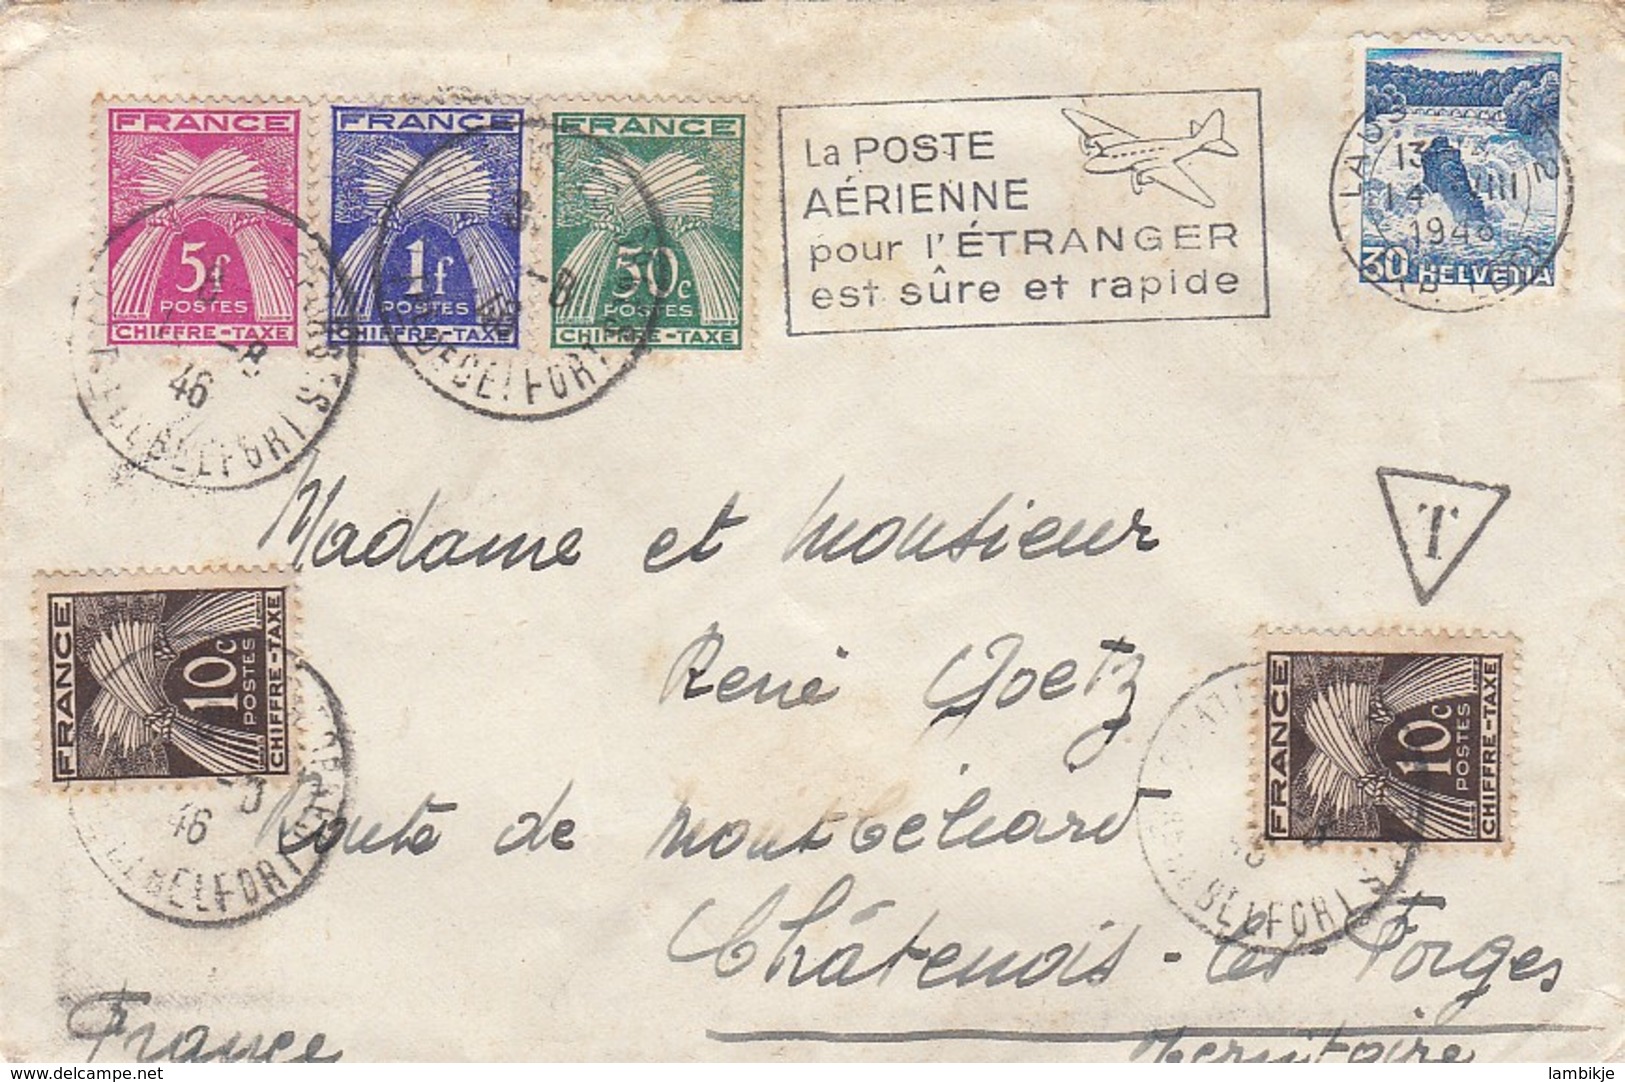 FRANCE
5f
POSTES
CHIFFRE-TAXE
FRANCE
1f
POSTES
CHIFFRE-TAXE
FRANCE
50c
POSTES
CHIFFRE-TAXE
La POSTE
AÉRIENNE
pour l'ÉTRANGER
est sûre et rapide
30 HELVETIA
14 VIII
1946
-8
46
BELFORT
-8
46
BELFORT
T
Madame et Monsieur
René Goetz
Route de Montbéliard
Châtenois-les-Forges
Territoire
France
FRANCE
10c
POSTES
CHIFFRE-TAXE
46
BELFORT
FRANCE
10c
POSTES
CHIFFRE-TAXE
BELFORT
delcampe.net
lambikje